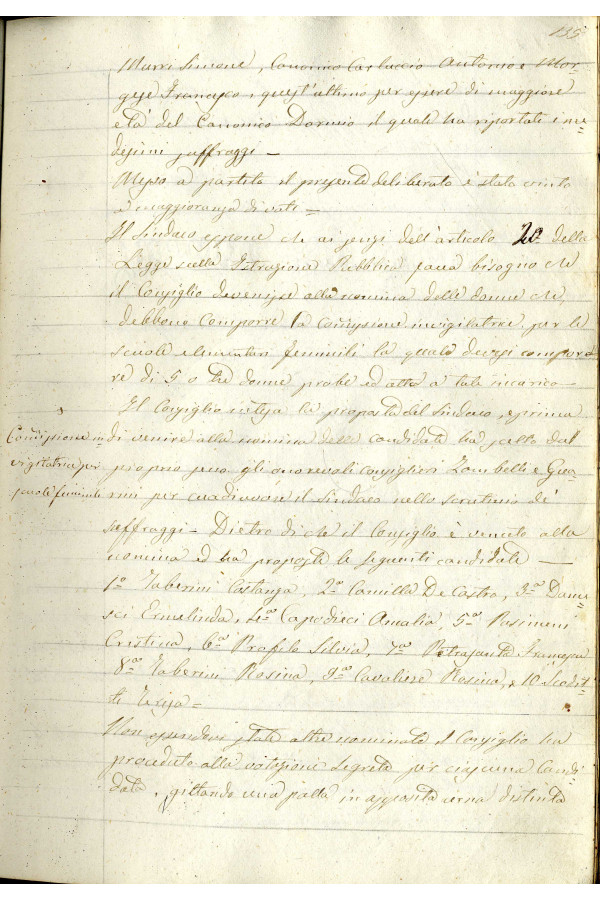 135
Murri Simone, Canonico Carluccio Antonio e Mor=
gese Francesco, quest'ultimo per essere di maggiore
età del Canonico Dormio il quale ha riportati i me=
desimi suffraggi —
Messo a partito il presente deliberato è stato vinto
a maggioranza di voti —
Il Sindaco espone che ai sensi dell'articolo 20 della
Legge sulla Istruzione Pubblica, sarà bisogno che
il Consiglio devenisse alla nomina delle donne che
debbono comporre la comissione invigilatrice per le
scuole elementari femminili la quale devesi compor=
re di 5 o tre donne probe ed atte a tale incarico —
Il Consiglio intesa la proposta del Sindaco, e prima
Comissione in=
vigilatrice per
scuole femminili
di venire alla nomina delle candidate ha scelto dal
proprio seno gli onorevoli consiglieri Zambetti e Gua=
rini per coadiuvare il Sindaco nello scrutinio de'
suffraggi — Dietro di che il Consiglio è venuto alla
nomina ed ha proposti le seguenti candidate —
1ª Taberini Costanza, 2ª Camilla De Castro, 3ª Dame=
sci Ermelinda, 4ª Capodieci Amalia, 5ª
Cristina, 6ª Silvia, 7ª Francesca
8ª Taberini Rosina, 9ª Cavaliere Rosina, e 10 Scodit=
ti =
Non essendovi state altre nominate il Consiglio ha
proceduto alla votazione segreta per ciascuna Candi=
data, gittando una palla in apposita urna distinta